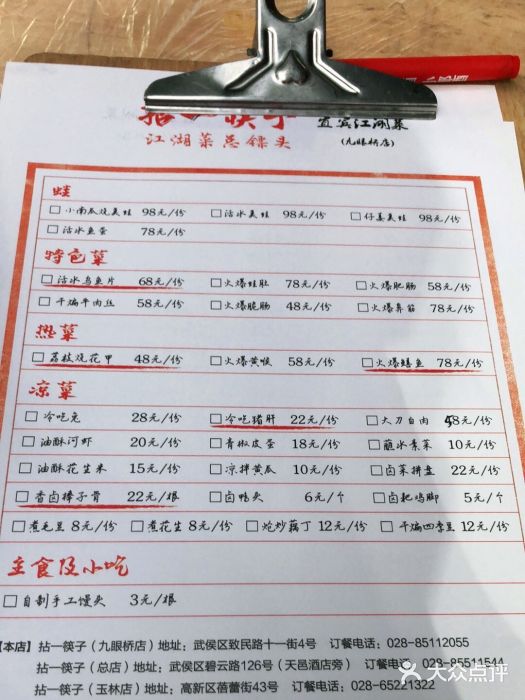 拈一筷子 宜宾江湖菜
江湖菜总镖头 (九眼桥店)
蛙
□小南瓜烧美蛙 98元/份 □活水美蛙 98元/份 □仔姜美蛙 98元/份
□活水鱼蛋 78元/份
特色菜
□活水乌鱼片 68元/份 □火爆蛙肚 78元/份 □火爆肥肠 58元/份
□干煸牛肉丝 58元/份 □火爆脆肠 48元/份 □火爆鼻筋 78元/份
热菜
□荔枝烧花甲 48元/份 □火爆黄喉 58元/份 □火爆鳝鱼 78元/份
凉菜
□冷吃兔 28元/份 □冷吃猪肝 22元/份 □大刀白肉 58元/份
□油酥河虾 20元/份 □青椒皮蛋 18元/份 □蘸水素菜 10元/份
□油酥花生米 15元/份 □凉拌黄瓜 10元/份 □卤菜拼盘 22元/份
□香卤棒子骨 22元/根 □卤鸭头 6元/个 □卤粑鸡脚 5元/个
□煮毛豆 8元/份 □煮花生 8元/份 □炝炒藕丁 12元/份 □干煸四季豆 12元/份
主食及小吃
□自制手工馒头 3元/根
【本店】拈一筷子（九眼桥店）地址：武侯区致民路十一街4号 订餐电话：028-85112055
拈一筷子（总店）地址：武侯区碧云路126号（天邑酒店旁） 订餐电话：028-85511544
拈一筷子（玉林店）地址：高新区蓓蕾街43号 订餐电话：028-65221322
大众点评